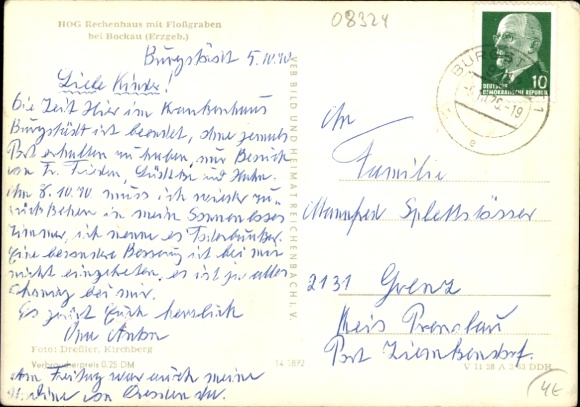 HOG Rechenhaus mit Floßgraben
bei Bockau (Erzgeb.)
08324
Burgstädt 5.10.70
Liebe Kinder!
Die Zeit hier im Krankenhaus
Burgstädt ist beendet, ohne jemals
Post erhalten zu haben, nur Besuch
von Fr. und Hahn.
Am 8.10.70 muss ich wieder zu-
rück in mein Sonnenloses
Zimmer, ich nenne es
Eine besondere Besserung ist bei mir
nicht eingetreten, es ist ja alles
bei mir.
Es grüßt Euch herzlich
Opa Anton
Foto: Dreßler, Kirchberg
Verbraucherpreis 0,25 DM
14 1872
Am Freitag war auch meine
von Dresden da.
VEB BILD UND HEIMAT REICHENBACH I. V.
DEUTSCHE
DEMOKRATISCHE REPUBLIK
10
BURGST
An
Familie
Mannfred Splettstösser
2131 Grenz
Kreis Prenzlau
Post
V 11 28 A 3/63 DDR
4E